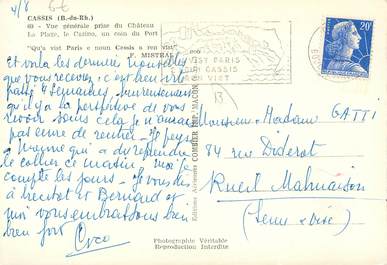 4/8
CASSIS (B.-du-Rh.)
60 - Vue générale prise du Château
La Place, le Casino, un coin du Port
"Qu'a vist Paris e noun Cassis a ren vist"
F. MISTRAL
VIST PARIS
CASSIS
REN VIST
20F
13
Et voilà les dernières nouvelles
que vous recevez, c'est bien vite
passé 4 semaines, heureusement
qu'il y a la perspective de vous
revoir sans cela je n'aurais
pas envie de rentrer - Je pense
à qui a du reprendre
le collier ce matin, moi je
compte les jours - Je vous dis
à bientôt et Bernard et
moi vous embrassons bien
bien fort
Monsieur & Madame GATTI
84 rue Diderot
Rueil Malmaison
(Seine & Oise)
Editions COMBIER IMP. MACON
Photographie Véritable
Reproduction Interdite